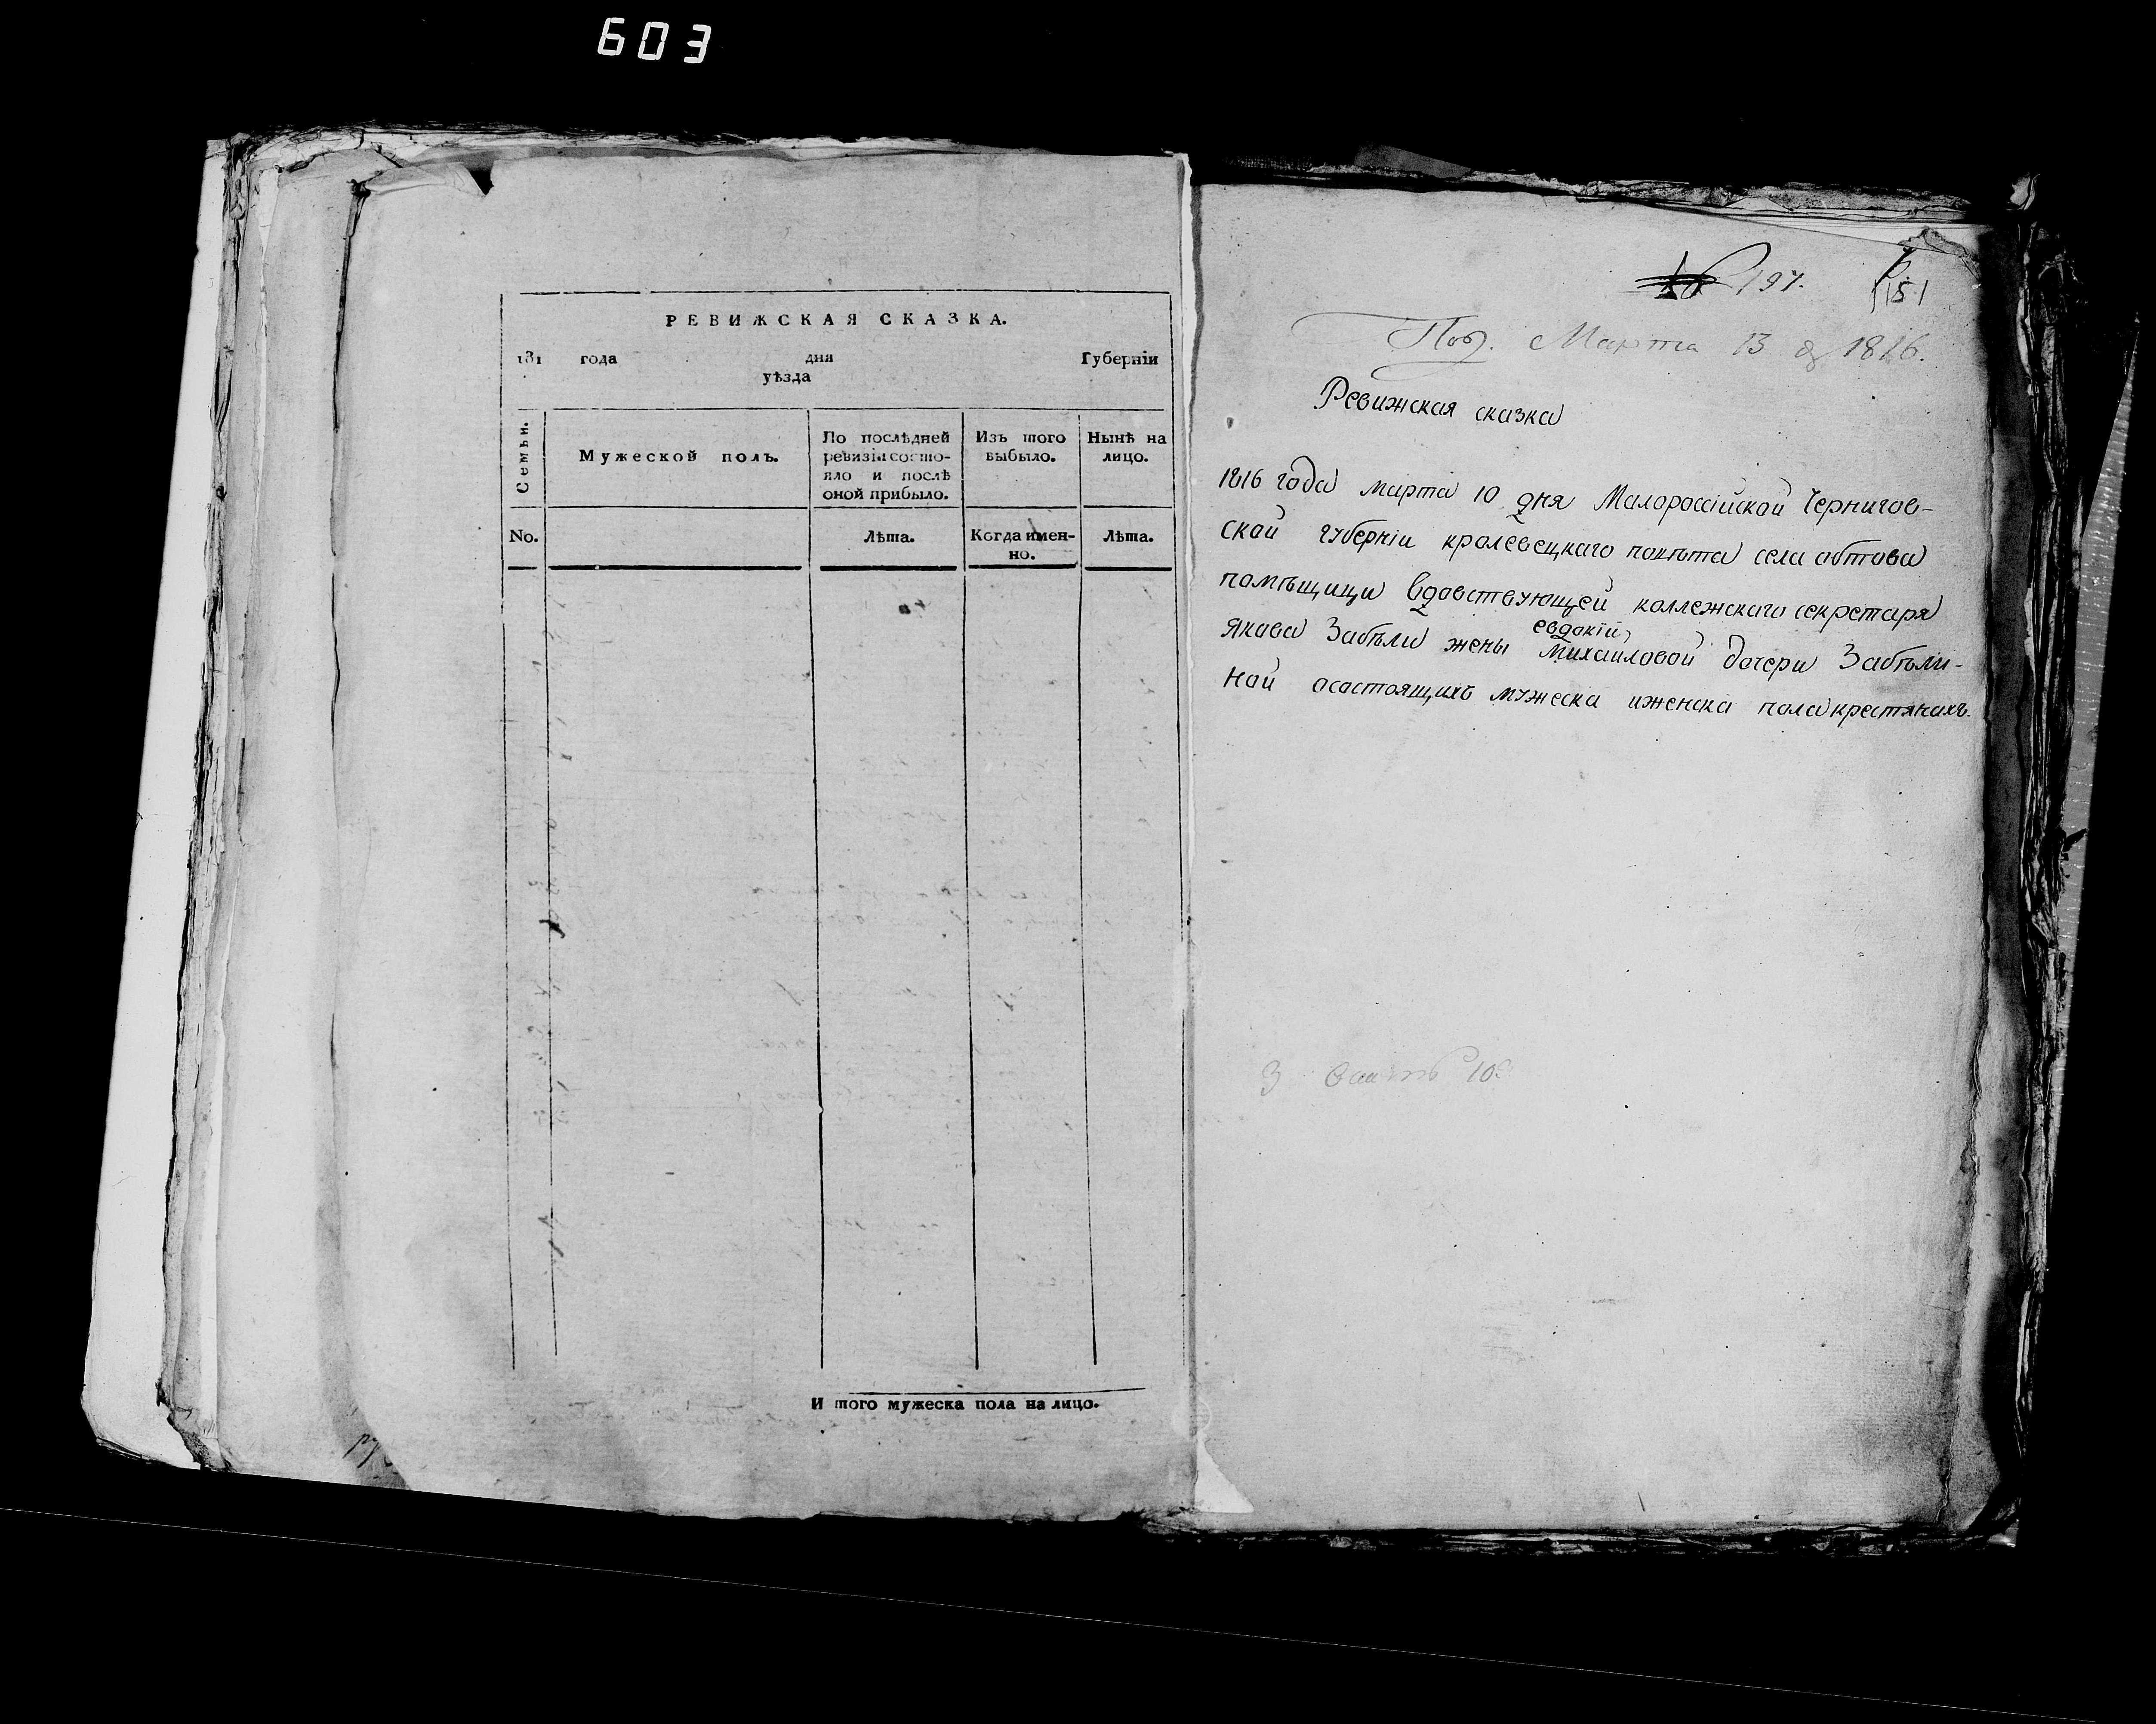 603
РЕВИЖСКАЯ СКАЗКА.
181 года дня Губерніи
уѣзда
Семьи.
Мужеской полъ.
По послѣдней
ревизіи состо-
яло и послѣ
оной прибыло.
Изъ того
выбыло.
Нынѣ на
лицо.
No.
Лѣта.
Когда имен-
но.
Лѣта.
И того мужеска пола на лицо.
197. 151
Марта 13 д 1816.
Ревижская сказка
1816 года марта 10 дня Малороссійской Чернигов-
ской губерніи кролевецкаго повѣта села обтова
помѣщици вдовствующей коллежскаго секретаря
якова Забѣли жены евдокіи
Михайловой дочери Забѣли-
ной осостоящихъ мужеска иженска пола крестянахъ.